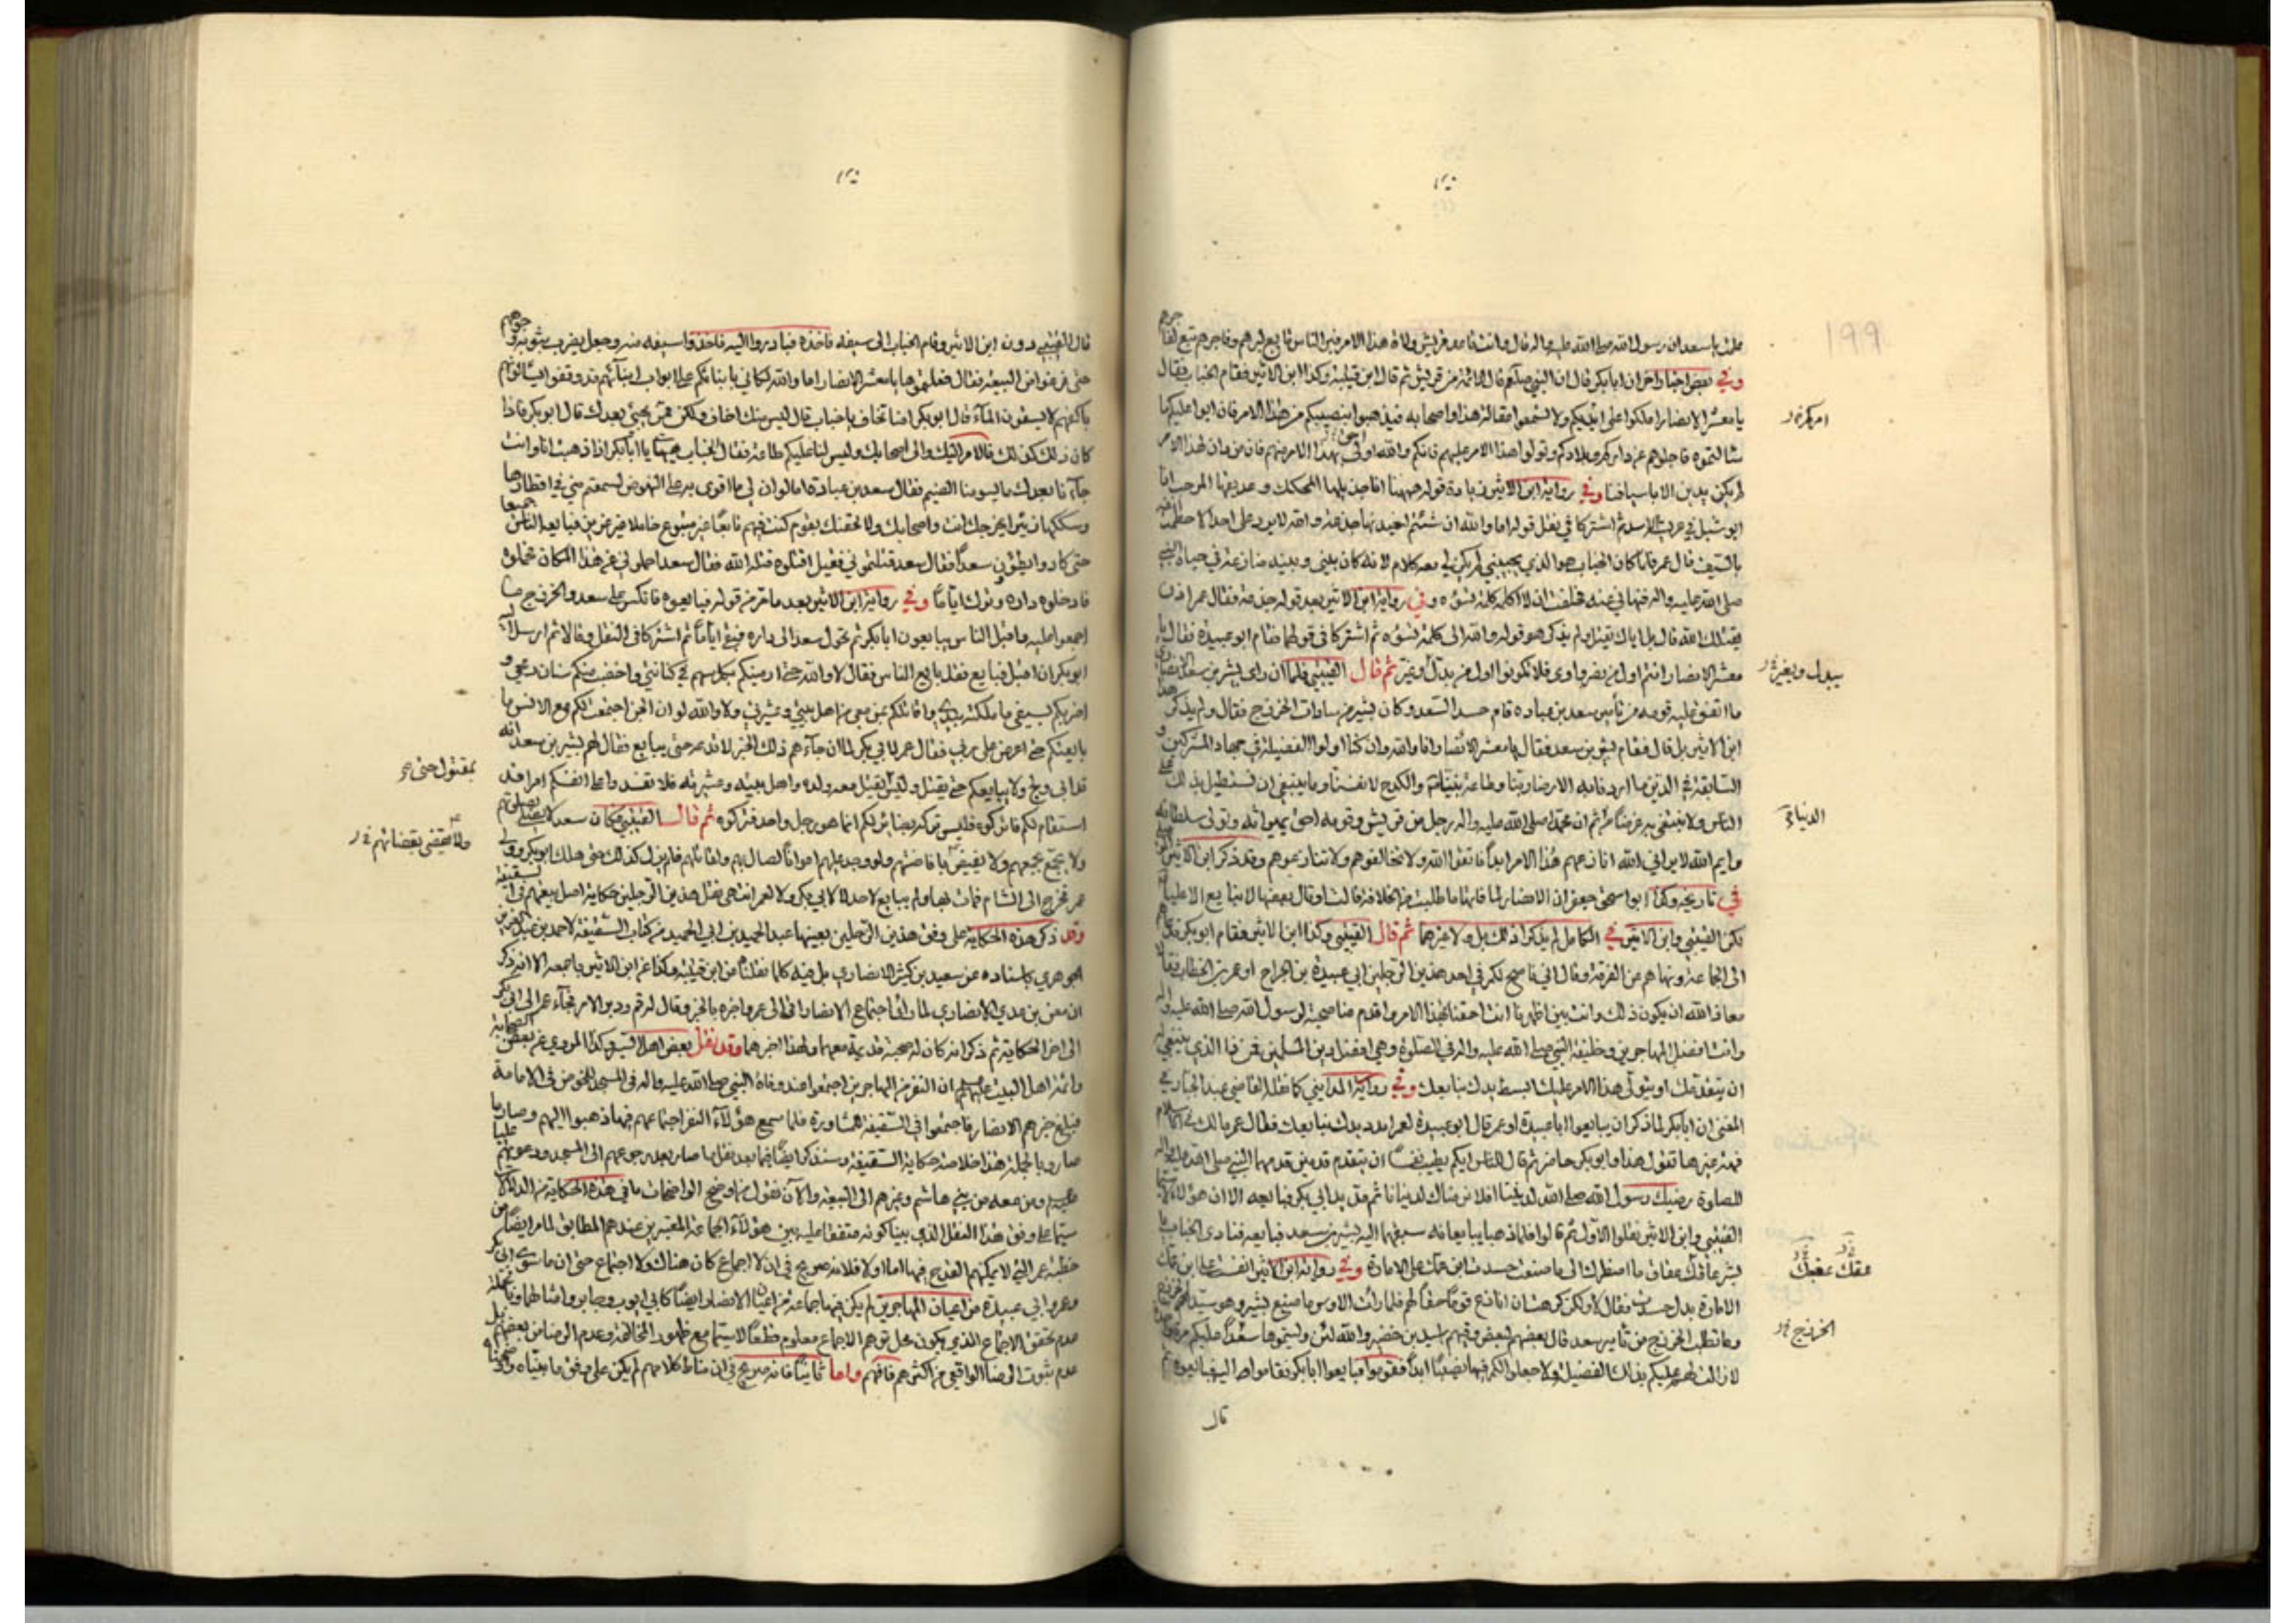 ١٩٩
علمت يا سعد ان رسول الله صلى الله عليه واله قال وانت قاعد قريش ولاة هذا الامر فبر الناس تابع لبرهم وفاجرهم تبع لفاجرهم
وفي بعض اخبار اخر ان ابابكر قال ان النبي صلعم قال الائمة من قريش ثم قال ابن قتيبة وكذا ابن الاثير فقام الحباب فقال
يا معشر الانصار املكوا على ايديكم ولا تسمعوا مقالة هذا واصحابه فيذهبوا بنصيبكم من هذا الامر فان ابوا عليكم ما
سالتموه فاجلوهم عن بلادكم وتولوا هذا الامر عليهم فانكم والله اولى بهذا الامر منهم فانه دان لهذا الامر
لم يكن يدين الا باسيافنا وفي رواية ابن الاثير زيادة قوله ههنا انا جذيلها المحكك وعذيقها المرجب انا
ابو شبل في عرينة الاسد ثم اشتركا في نقل قوله اما والله ان شئتم لنعيدنها جذعة والله لا يرد على احد الا حطمت انفه
بالسيف قال عمر فلما كان الحباب هو الذي يجيبني لم يكن لي معه كلام لانه كان بيني وبينه منازعة في حياة النبي
صلى الله عليه واله فنهاني عنه فحلفت ان لا اكلمه كلمة تسوءه وفي رواية ابن الاثير بعد قوله جذعة فقال عمر اذن
يقتلك الله قال بل اياك يقتل ولم يذكر هو قوله والله الى كلمة تسوءه ثم اشتركا في قولهما فقام ابو عبيدة فقال يا
معشر الانصار انتم اول من نصر واوى فلا تكونوا اول من بدل وغير ثم قال القتيبي فلما ان راى بشير بن سعد الانصاري
ما اتفق عليه قومه من تأمير سعد بن عباده قام حسدا لسعد وكان بشير من سادات الخزرج فقال ولم يذكر هذا
ابن الاثير بل قال فقام بشير بن سعد فقال يا معشر الانصار انا والله وان كنا اولوا الفضيلة في جهاد المشركين و
السابقة في الدين ما اردنا به الا رضا ربنا وطاعة نبينا والكدح لانفسنا وما ينبغي ان نستطيل بذلك على
الناس ولا نبتغي به عرضا ثم ان محمدا صلى الله عليه واله رجل من قريش وقومه احق بميراثه وتولى سلطانه
وايم الله لا يراني الله انازعهم هذا الامر ابدا فاتقوا الله ولا تخالفوهم ولا تنازعوهم وقد ذكر ابن الاثير
في تاريخه وكذا ابو اسحق جعفر ان الانصار لما فاتها ما طلبت من الخلافة قالت او قال بعضها لا نبايع الا عليا
لكن القتيبي وابن الاثير في الكامل لم يذكرا ذلك بل ولا غيرهما ثم قال القتيبي وكذا ابن الاثير فقام ابو بكر فدعاهم
الى الجماعة ونهاهم عن الفرقة وقال اني ناصح لكم في احد هذين الرجلين ابي عبيدة بن الجراح او عمر بن الخطاب فقالا
معاذ الله ان يكون ذلك وانت بين اظهرنا انت احقنا بهذا الامر واقدم منا صحبة لرسول الله صلى الله عليه واله
وانت افضل المهاجرين وخليفة النبي صلى الله عليه واله في الصلوة وهي افضل دين المسلمين فمن ذا الذي ينبغي له
ان يتقدمك او يتولى هذا الامر عليك ابسط يدك نبايعك وفي رواية المدايني كما نقله القاضي عبد الجبار في
المغني ان ابابكر لما ذكر ان يبايعوا ابا عبيدة او عمر قال ابو عبيدة لعمر امدد يدك نبايعك فقال عمر مالك في الاسلام
فهة غيرها تقول هذا وابو بكر حاضر ثم قال للناس ايكم يطيب نفسا ان يتقدم قدمين قدمهما النبي صلى الله عليه واله
للصلوة رضيك رسول الله صلى الله لديننا افلا نرضاك لدنيانا ثم مد يد ابي بكر فبايعه الا ان هؤلاء
القتيبي وابن الاثير نقلوا الاول ثم قالوا فلما ذهبا يبايعانه سبقهما اليه بشير بن سعد فبايعه فنادى الحباب يا
بشير عاقك عقاق ما اضطرك الى ما صنعت حسدت ابن عمك على الامارة وفي رواية ابن الاثير انفست على ابن عمك
الامارة بدل حسدت فقال لا ولكن كرهت ان انازع قوما حقا لهم فلما رأت الاوس ما صنع بشير وهو سيد الخزرج
وما تطلب الخزرج من تامير سعد قال بعضهم لبعض وفيهم اسيد بن حضير والله لئن وليتموها سعدا عليكم مرة
لا زالت لهم عليكم بذلك الفضيلة ولا جعلوا لكم فيها نصيبا ابدا فقوموا فبايعوا ابابكر فقاموا اليه فبايعوه
قال
الدنيا
عقك عقيك
الخزرج
قال القتيبي دون ابن الاثير وقام الحباب الى سيفه فاخذه فبادروا اليه فاخذوا سيفه منه وجعل يضرب بثوبه وجوههم
حتى فرغوا من البيعة فقال فعلتموها يا معشر الانصار اما والله لكاني بابنائكم على ابواب ابنائهم قد وقفوا يسألونهم
باكفهم لا يسقون الماء قال ابو بكر امنا تخاف يا حباب قال ليس منك اخاف ولكن ممن يجيء بعدك قال ابو بكر فاذا
كان ذلك كذلك فالامر اليك والى اصحابك وليس لنا عليكم طاعة فقال الحباب هيهات يا ابابكر اذا ذهبت انا وانت
جاءنا بعدك من يسومنا الضيم فقال سعد بن عبادة اما لو ان لي ما اقوى به على النهوض لسمعتم مني في اقطارها
وسككها زئيرا يخرجك انت واصحابك ولالحقنك بقوم كنت فيهم تابعا غير متبوع خاملا غير عزيز فبايعه الناس جميعا
حتى كادوا يطؤن سعدا فقال سعد قتلتموني فقيل اقتلوه قتله الله فقال سعد احملوني من هذا المكان فحملوه
فادخلوه داره وترك اياما وفي رواية ابن الاثير بعد ما مر من قوله فبايعوه فانكسر على سعد والخزرج ما
اجمعوا عليه واقبل الناس يبايعون ابابكر ثم تحول سعد الى داره فبقي اياما ثم اشتركا في النقل وقالا ثم ارسل اليه
ابو بكر ان اقبل فبايع فقد بايع الناس فقال لا والله حتى ارميكم بكل سهم في كنانتي واخضب منكم سنان رمحي و
اضربكم بسيفي ما ملكته يدي واقاتلكم بمن معي من اهل بيتي وعشيرتي ولا والله لو ان الجن اجتمعت لكم مع الانس ما
بايعتكم حتى اعرض على ربي فقال عمر لابي بكر لما ان جاءهم ذلك الخبر لا تدعه حتى يبايع فقال لهم بشير بن سعد انه
قد ابى ولج ولا يبايعكم حتى يقتل وليس يقتل معه ولده واهل بيته وعشيرته فلا تفسدوا على انفسكم امرا قد
استقام لكم فاتركوه فليس تركه بضائركم انما هو رجل واحد فتركوه ثم قال القتيبي فكان سعد لا يصلي بصلوتهم
ولا يجمع بجمعهم ولا يفيض بافاضتهم ولو وجد عليهم اعوانا لصال بهم ولقاتلهم فلم يزل كذلك حتى هلك ابو بكر وولي
عمر فخرج الى الشام فمات بها ولم يبايع لاحد لا لابي بكر ولا لعمر انتهى نقل هذين الرجلين حكاية اصل بيعتهم في السقيفة
وقد ذكر هذه الحكاية على وفق هذين الرجلين بعينها عبد الحميد بن ابي الحديد من كتاب السقيفة لاحمد بن عبد العزيز
الجوهري باسناده عن سعيد بن كثير الانصاري بل فيه كلما نقلنا من ابن قتيبة وكذا عن ابن الاثير باجمعه الا انه ذكر
ان معن بن عدي الانصاري لما رأى اجتماع الانصار اتى الى عمر واخبره بالخبر وقال له قم ودبر الامر فجاء عمر الى ابي بكر
الى اخر الحكاية ثم ذكر انه كان له صحبة قديمة معهما ولهذا اخبرهما وقد نقل بعض اهل السير وكذا المروي عن بعض الصحابة
وائمة اهل البيت عليهم السلم ان النفر من المهاجرين اجتمعوا عند وفاة النبي صلى الله عليه واله في المسجد للخوض في الامامة
فبلغ خبرهم الانصار فاجتمعوا في السقيفة للمشاورة فلما سمع هؤلاء النفر اجتماعهم فيها ذهبوا اليهم وصار ما
صار وبالجملة هذا خلاصة حكاية السقيفة وسنذكر ايضا فيما بعد نقل ما صار بعد رجوعهم الى المسجد ودعوتهم عليا
عليهم ومن معه من بني هاشم وغيرهم الى البيعة والان نقول من اوضح الواضحات ما في هذه الحكاية من الدلالة
سيما على وفق هذا النقل الذي بينا كونه متفقا عليه بين هؤلاء الجماعة المعتبرين عندهم المطابق لما مر ايضا من
خطبة عمر التي لا يمكنهم القدح فيها اما اولا فلانه صريح في ان لا اجماع كان هناك ولا اجتماع حتى ان ما سوى ابي بكر
وعمر وابي عبيدة من اعيان المهاجرين لم يكن فيها جماعة من اعيان الانصار ايضا كابي ايوب وجابر وامثالهما
عدم تحقق الاجماع الذي يكون محل توهم الاجماع معلوم قطعا لاسيما مع ظهور المخالفة وعدم الرضا من بعضهم بل
عدم ثبوت الرضا الواقعي من اكثرهم فافهم واما ثانيا فانه صريح في ان مناط كلامهم لم يكن على وفق ما بيناه
بمقتول حتى